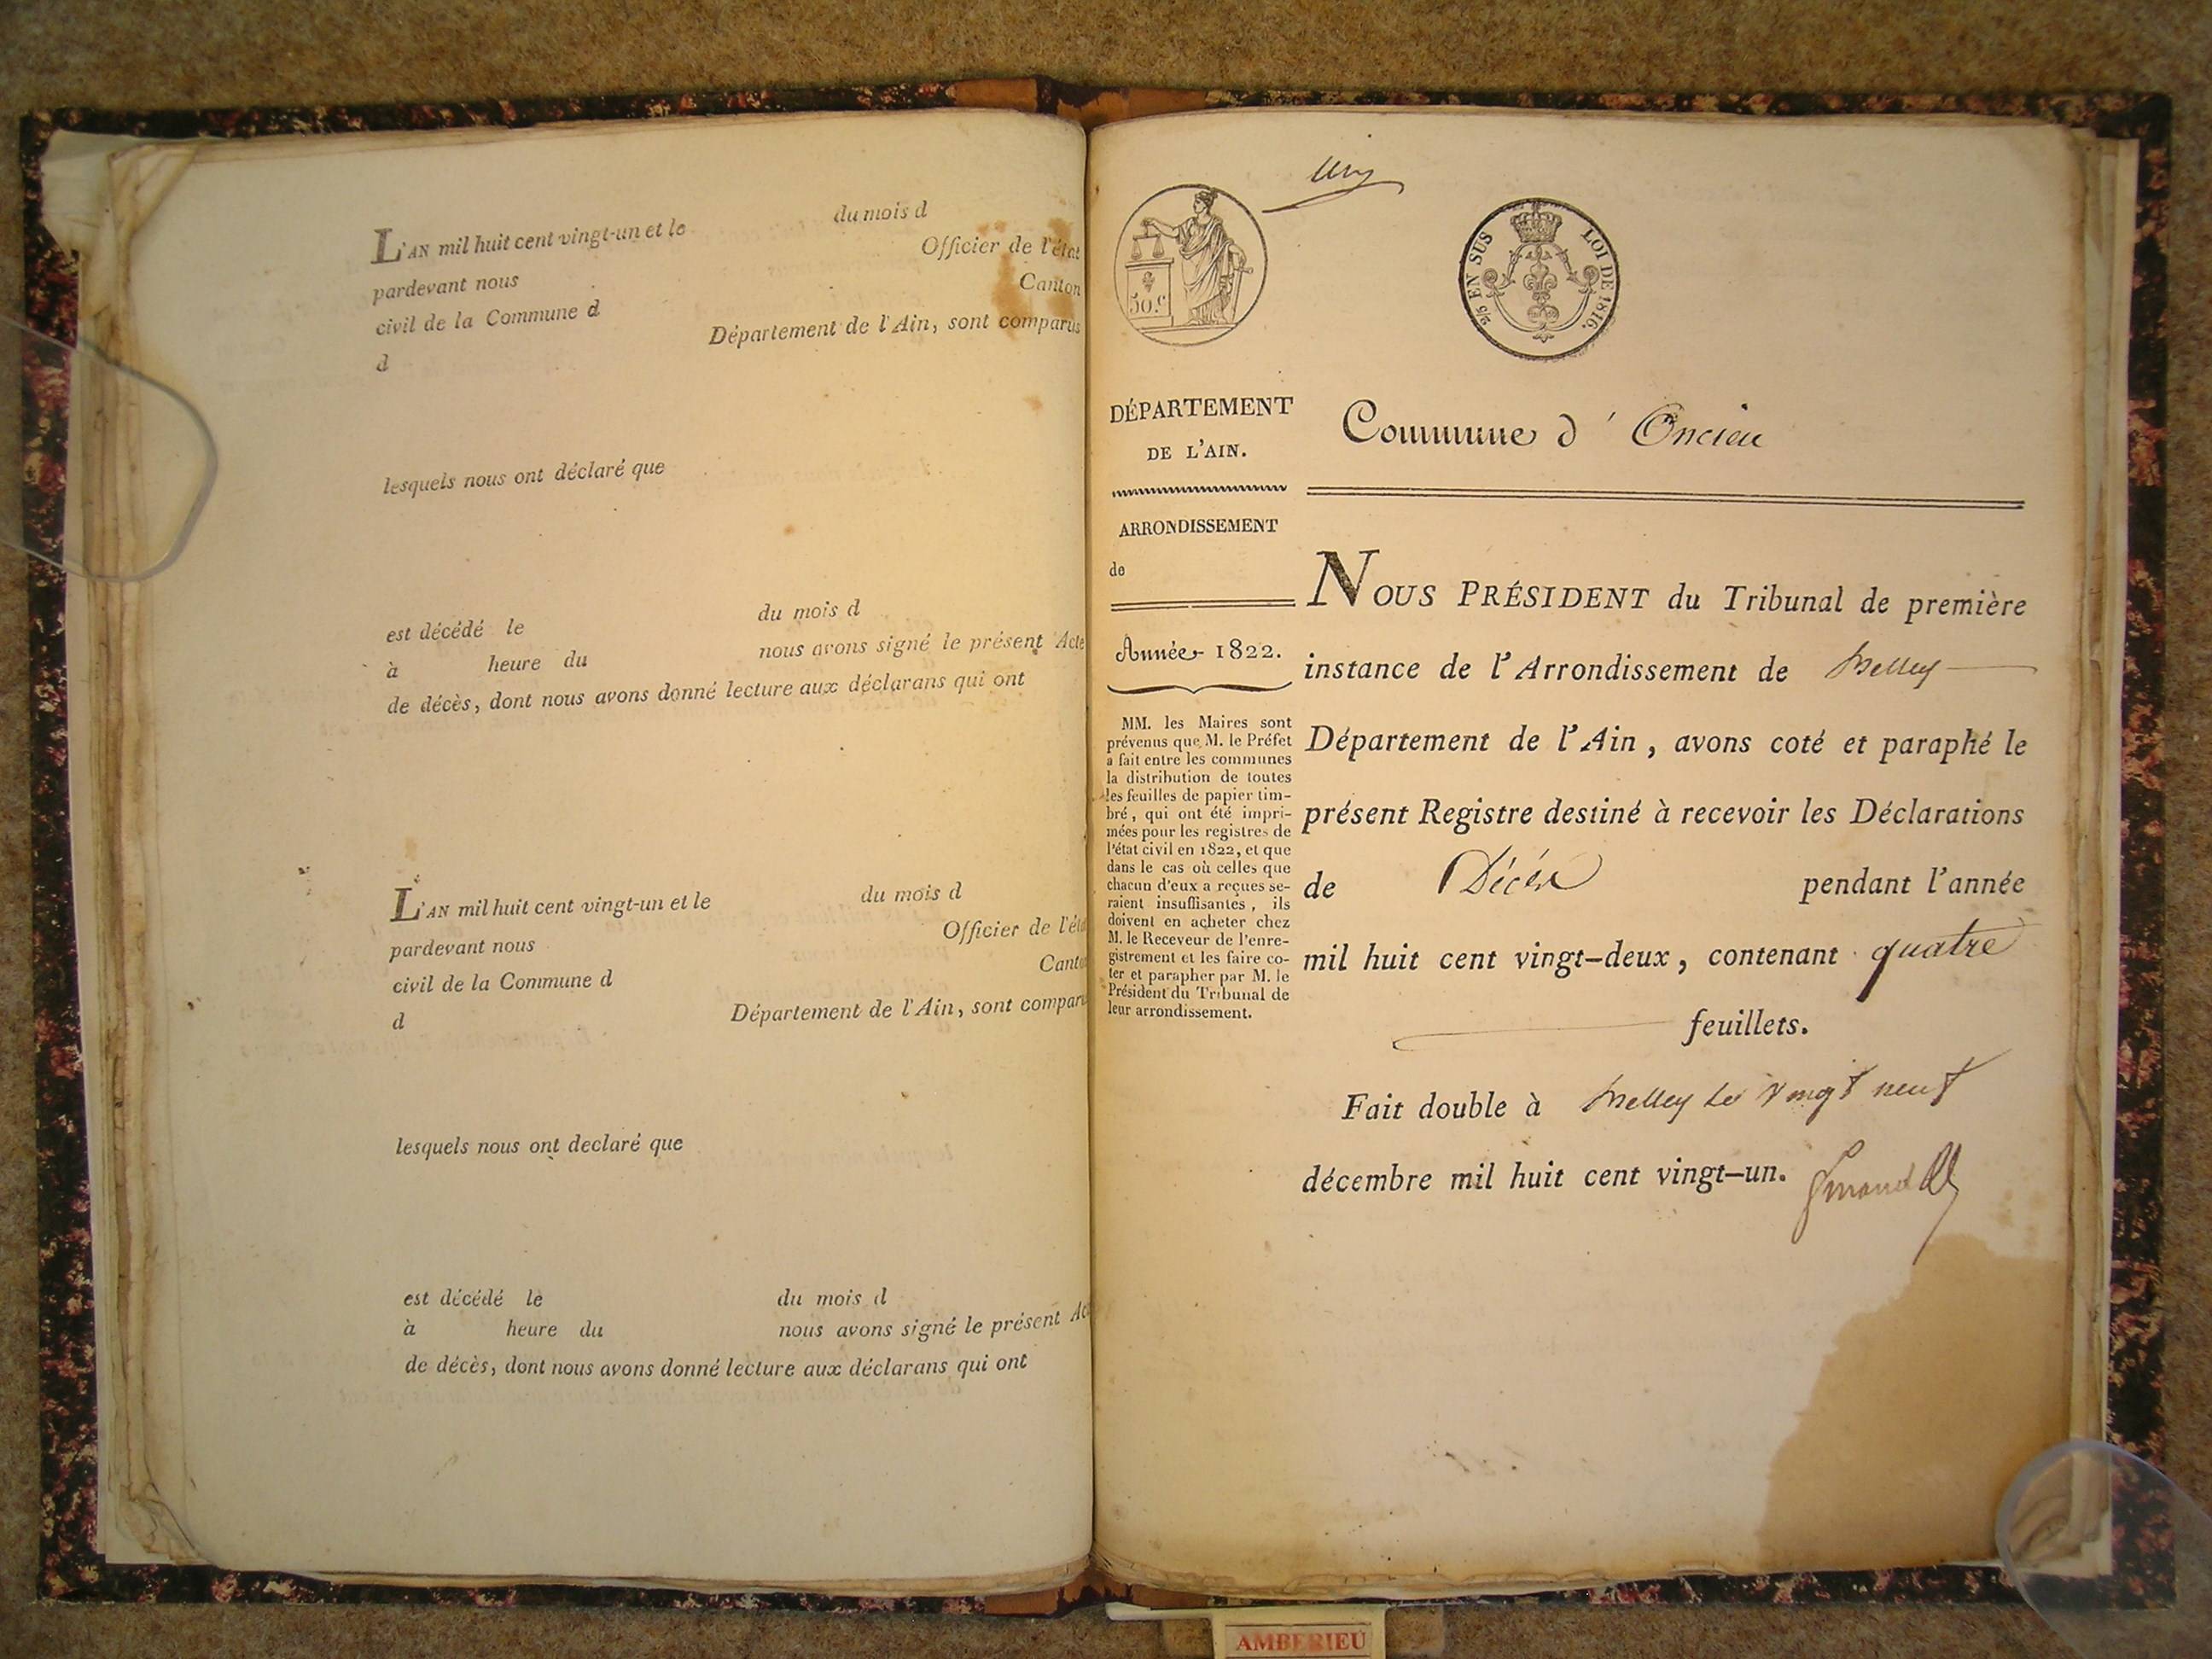 du mois d
L'AN mil huit cent vingt-un et le
Officier de l'état
pardevant nous
Canton
civil de la Commune d
Département de l'Ain, sont comparus
d
lesquels nous ont déclaré que
est décédé le du mois d
à heure du nous avons signé le présent Acte
de décès, dont nous avons donné lecture aux déclarans qui ont
L'AN mil huit cent vingt-un et le du mois d
pardevant nous Officier de l'éta
civil de la Commune d Canto
d Département de l'Ain, sont comparu
lesquels nous ont declaré que
est décédé le du mois d
à heure du nous avons signé le présent Ac
de décès, dont nous avons donné lecture aux déclarans qui ont
un
50 C.
25 EN SUS LOI DE 1816.
DÉPARTEMENT
DE L'AIN.
ARRONDISSEMENT
de
Année 1822.
MM. les Maires sont
prévenus que M. le Préfet
a fait entre les communes
la distribution de toutes
les feuilles de papier tim-
bré, qui ont été impri-
mées pour les registres de
l'état civil en 1822, et que
dans le cas où celles que
chacun d'eux a reçues se-
raient insuffisantes, ils
doivent en acheter chez
M. le Receveur de l'enre-
gistrement et les faire co-
ter et parapher par M. le
Président du Tribunal de
leur arrondissement.
Commune d' Oncieu
NOUS PRÉSIDENT du Tribunal de première
instance de l'Arrondissement de Belley
Département de l'Ain, avons coté et paraphé le
présent Registre destiné à recevoir les Déclarations
de Décès pendant l'année
mil huit cent vingt-deux, contenant quatre
feuillets.
Fait double à Belley le vingt neuf
décembre mil huit cent vingt-un.
AMBERIEU